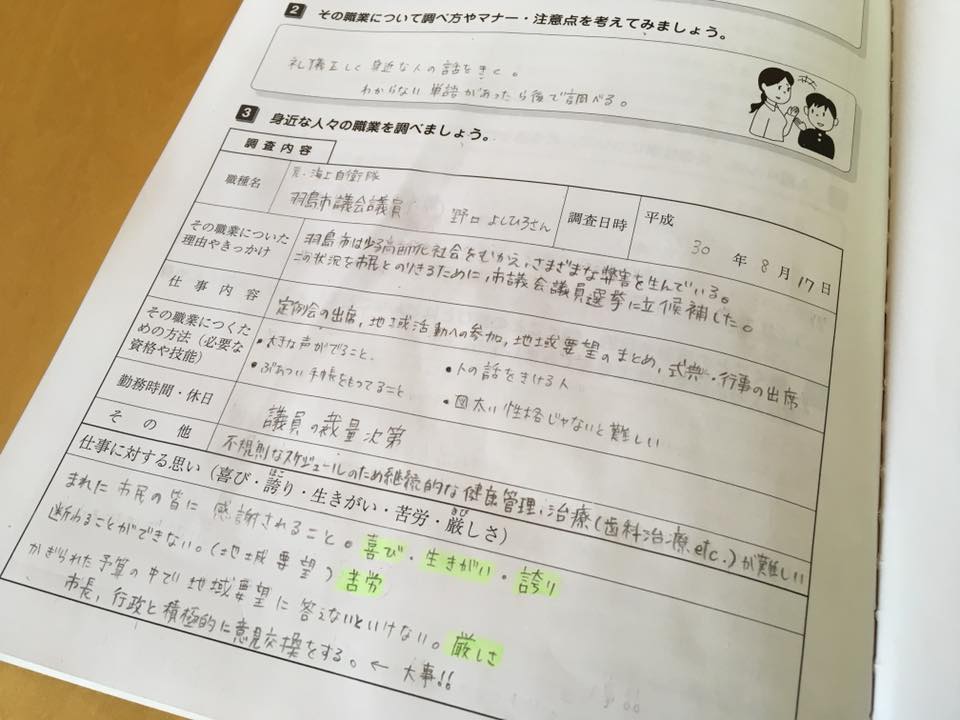 2 その職業について調べ方やマナー・注意点を考えてみましょう。
礼儀正しく身近な人の話をきく。
わからない単語があったら後で調べる。
3 身近な人々の職業を調べましょう。
調査内容
職種名
元・海上自衛隊
羽島市議会議員 野口よしひろさん
調査日時
平成
30年8月17日
その職業についた
理由やきっかけ
羽島市は少子高齢化社会をむかえ、さまざまな弊害を生んでいる。
この状況を市民とのりきるために、市議会議員選挙に立候補した。
仕事内容
定例会の出席、地域活動への参加、地域要望のまとめ、式典・行事の出席
その職業につくた
めの方法（必要な
資格や技能）
・大きな声がでること、
・人の話をきける人
・ぶあつい手帳をもってること
・図太い性格じゃないと難しい
勤務時間・休日
議員の裁量次第
その他
不規則なスケジュールのため継続的な健康管理、治療(歯科治療etc.)が難しい
仕事に対する思い（喜び・誇り・生きがい・苦労・厳しさ）
まれた市民の皆に感謝されること。喜び・生きがい・誇り
断わることができない。(地域要望)苦労
かぎられた予算の中で地域要望に答えないといけない。厳しさ
市長、行政と積極的に意見交換をする。←大事!!